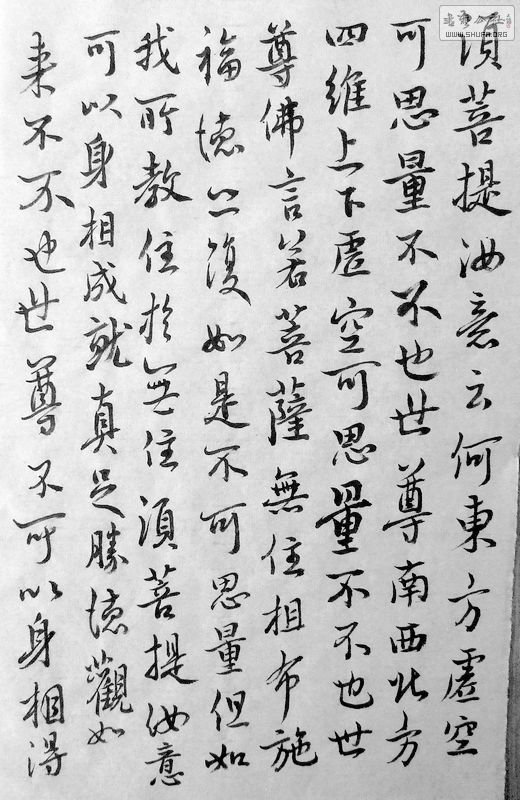 須菩提汝意云何東方虛空
可思量不不也世尊南西北方
四維上下虛空可思量不不也世
尊佛言若菩薩無住相布施
福德亦復如是不可思量但如
我所教住於無住須菩提汝意
可以身相成就真足勝德觀如
来不不也世尊不可以身相得
WWW.SHUFA.ORG